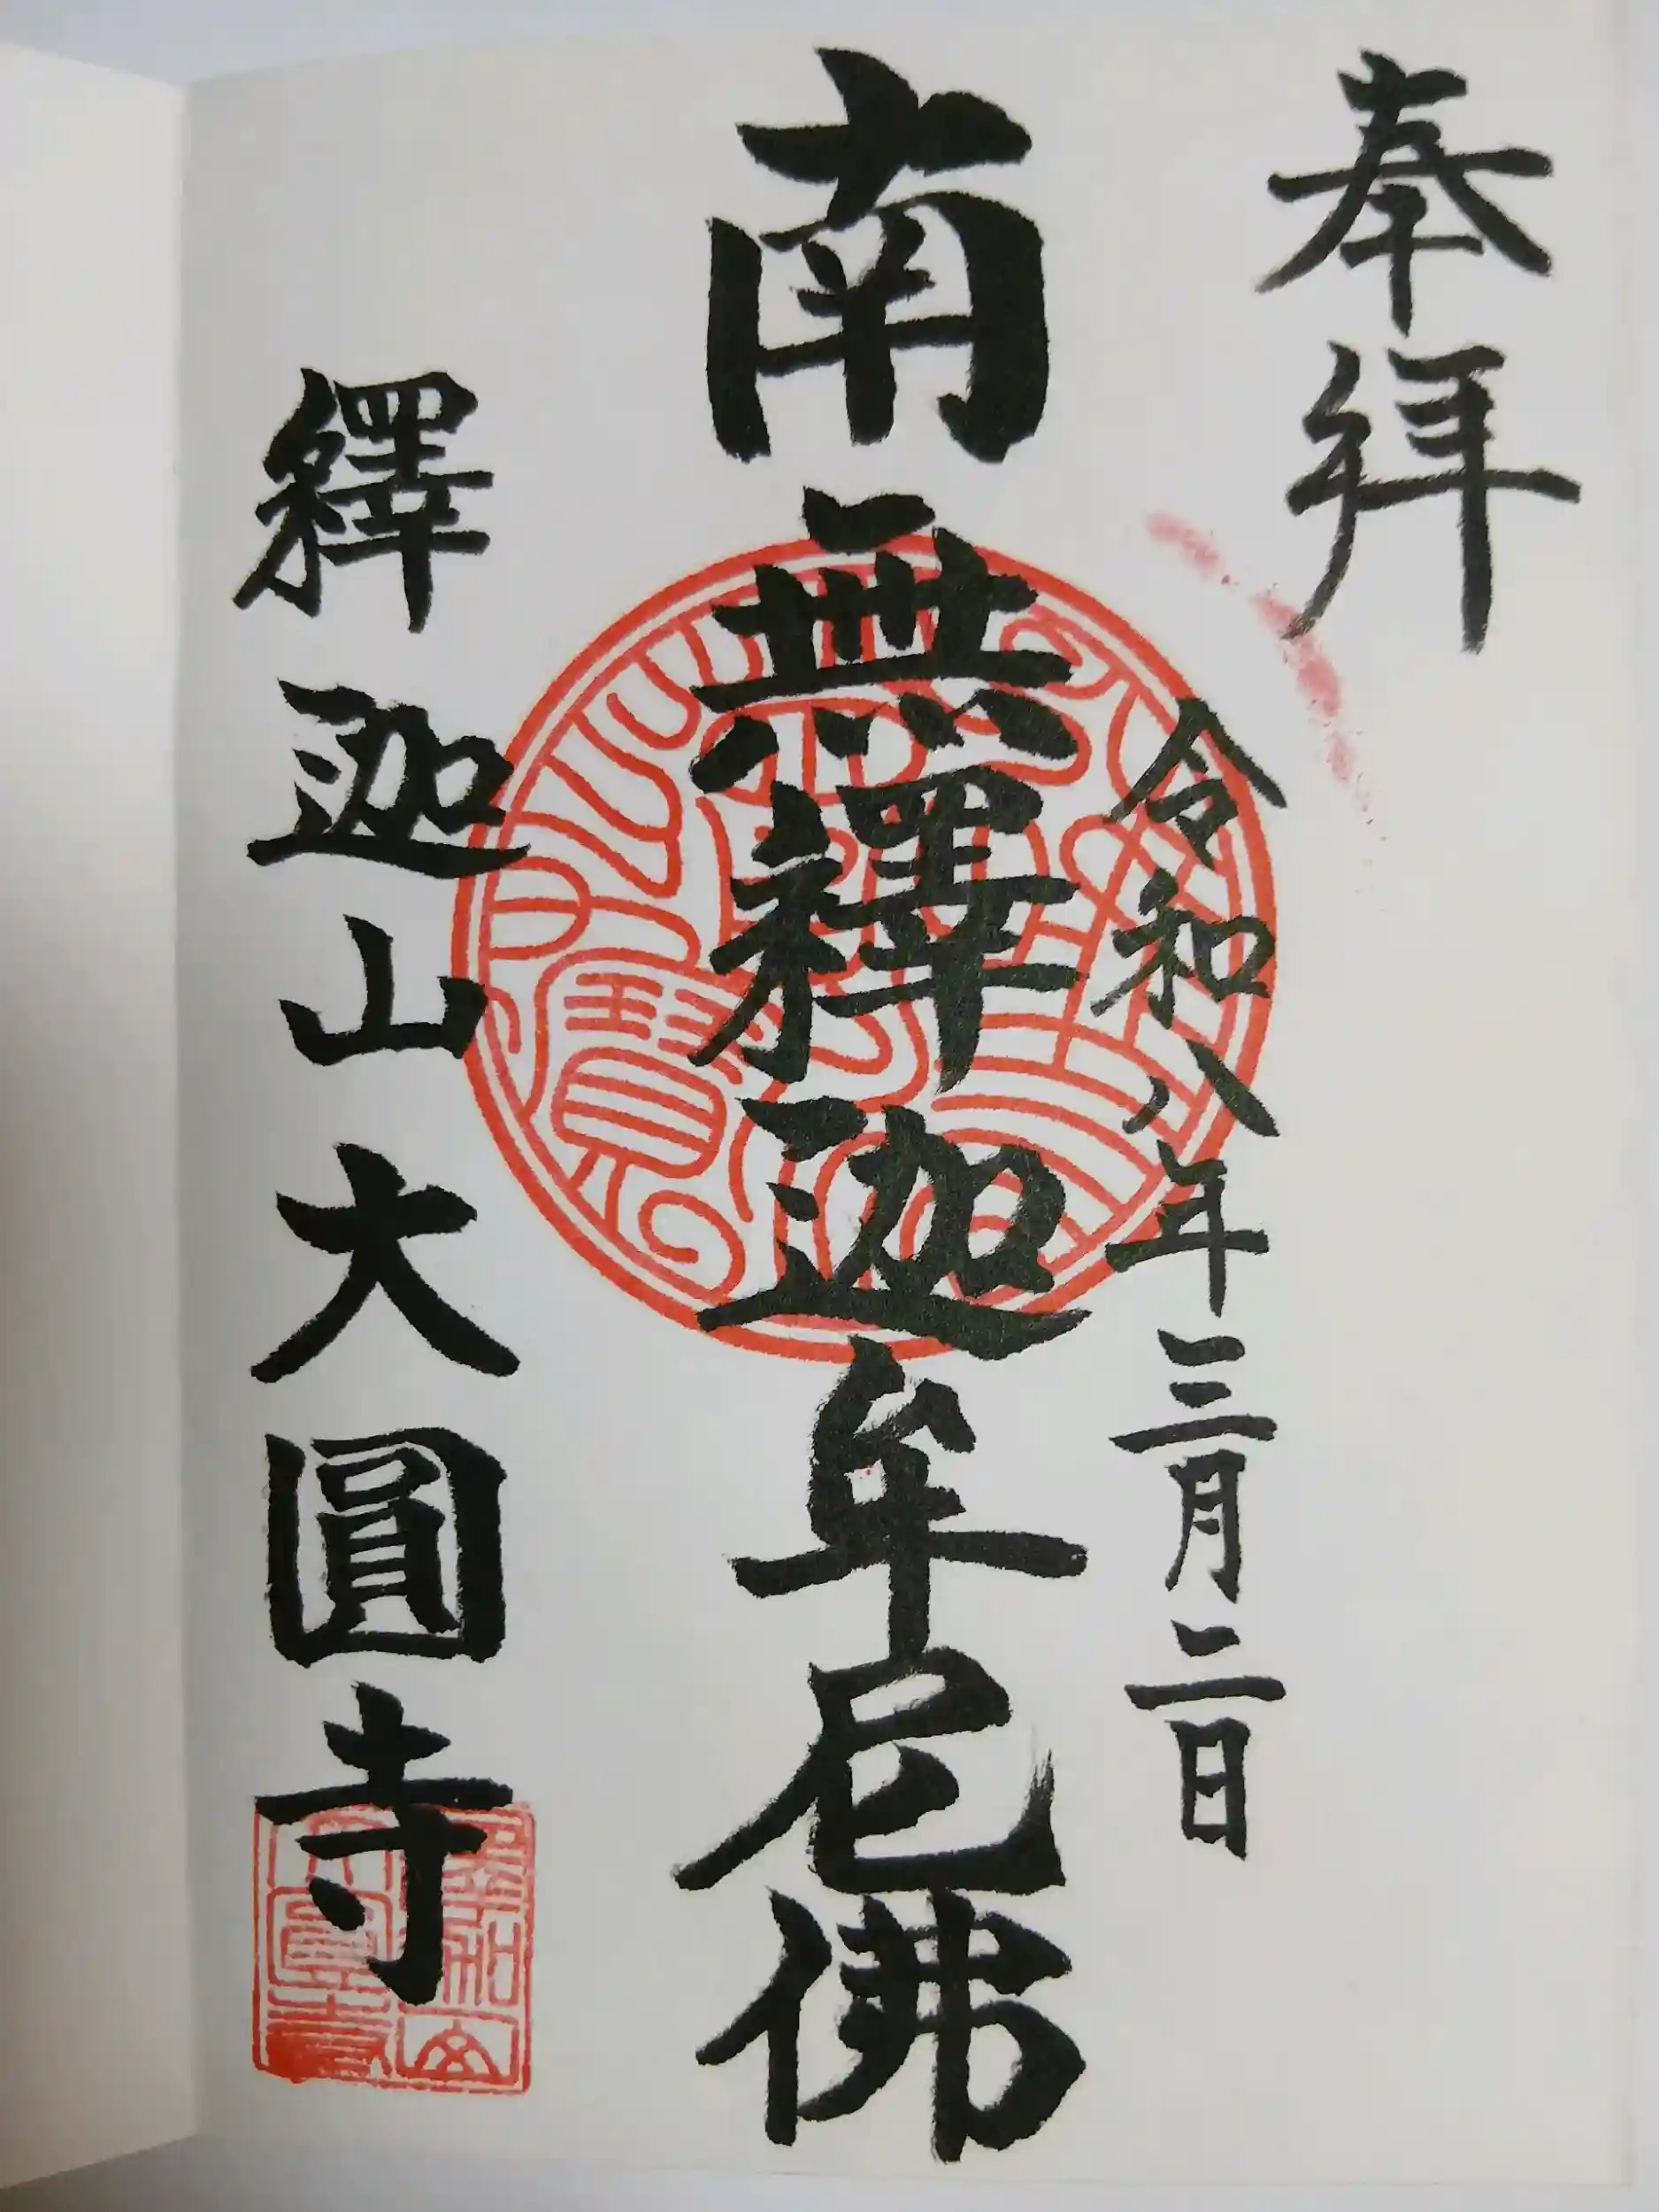 奉拜
令和八年三月二日
南無釋迦牟尼佛
釋迦山大圓寺